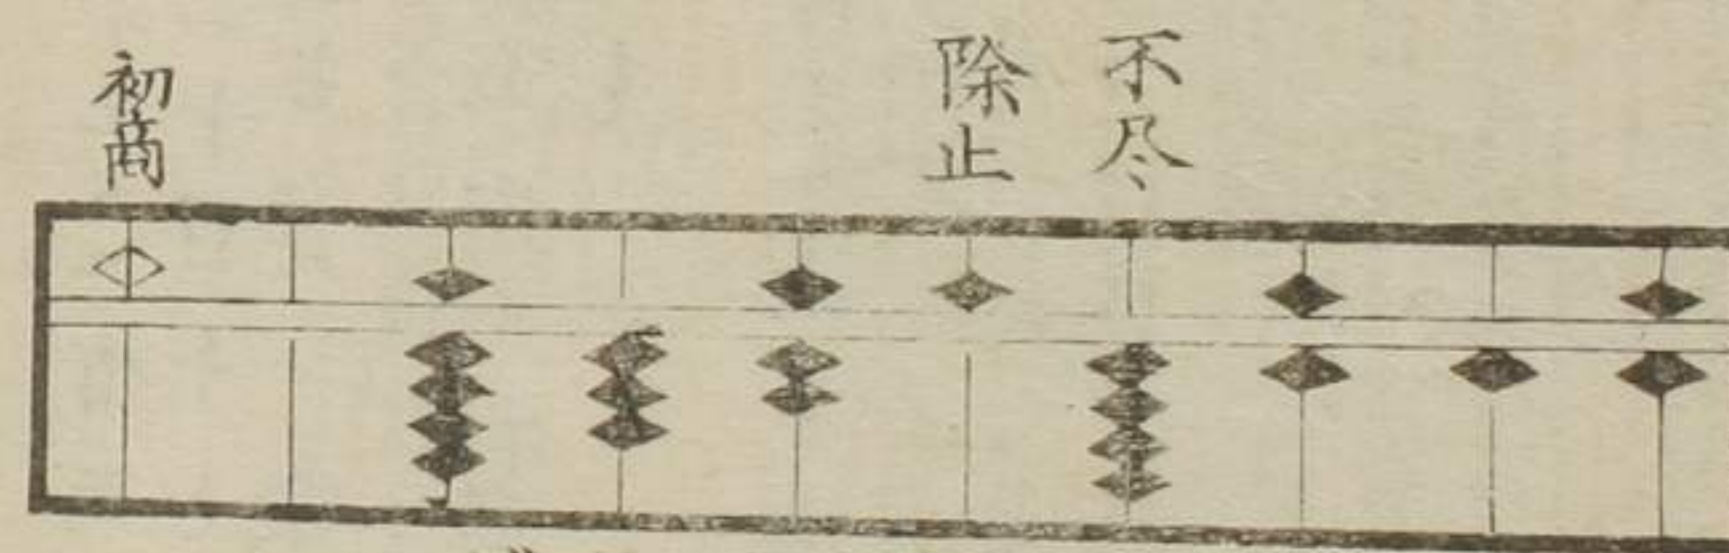 不尽
除止
初商